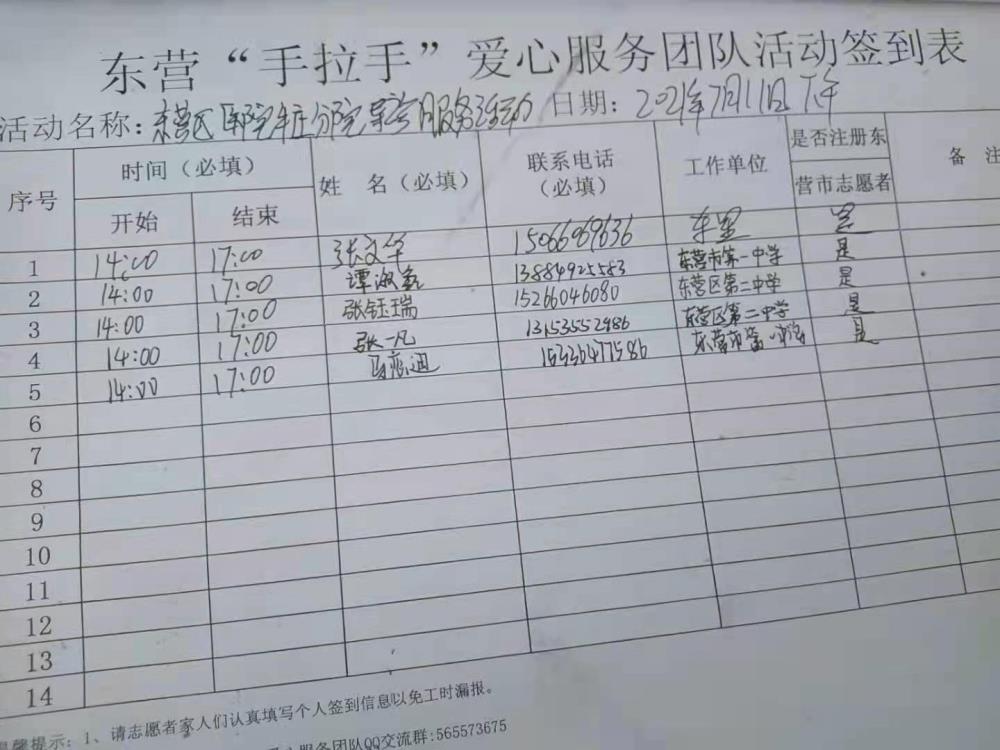 东营“手拉手”爱心服务团队活动签到表
活动名称：东营区 分院导诊服务活动 日期：2021年7月11日下午
序号 时间（必填） 姓 名（必填） 联系电话（必填） 工作单位 是否注册东营市志愿者 备 注
开始 结束
1 14:00 17:00 张文华 15066069636 是
2 14:00 17:00 谭淑 13884925583 东营市第一中学 是
3 14:00 17:00 张钰瑞 15266046080 东营区第二中学 是
4 14:00 17:00 张一凡 13153552986 东营区第二中学 是
5 14:00 17:00 15336477586 东营市第一 是
6
7
8
9
10
11
12
13
14
温馨提示：1、请志愿者家人们认真填写个人签到信息以免工时漏报。
心服务团队QQ交流群:565573675